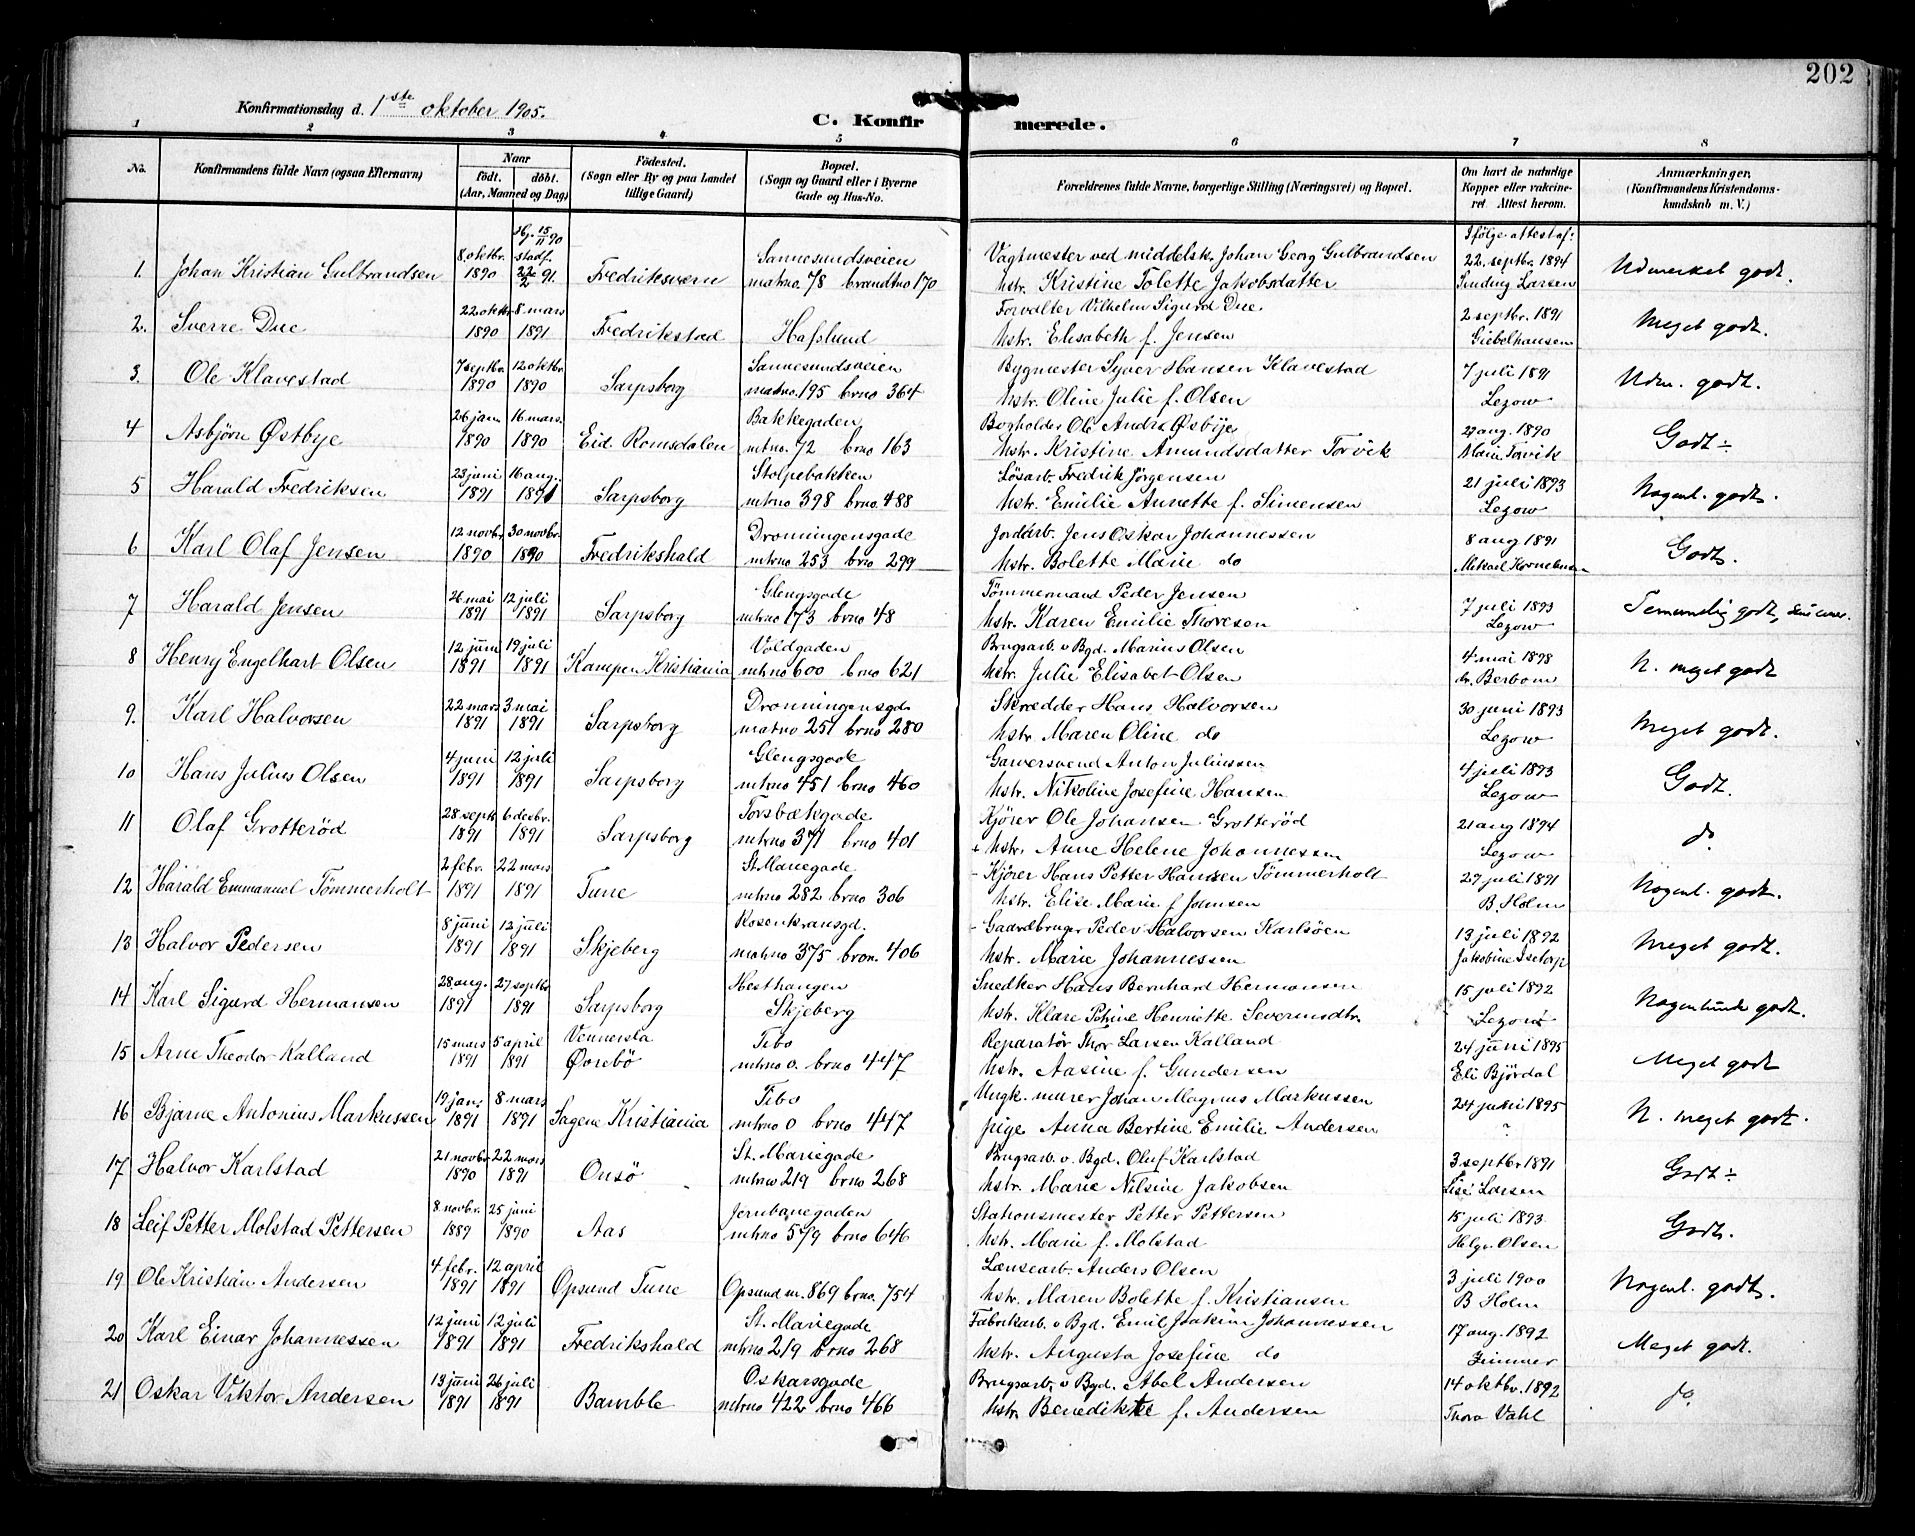 202
Konfirmationsdag d. 1ste oktober 1905.
C. Konfirmerede.
1 2 3 4 5 6 7 8
No.
Konfirmandens fulde Navn (ogsaa Efternavn)
Naar
født. døbt.
(Aar, Maaned og Dag)
Födested.
(Sogn eller By og paa Landet
tillige Gaard)
Bopæl.
(Sogn og Gaard eller i Byerne
Gade og Hus-No.
Forældrenes fulde Navne, borgerlige Stilling (Næringsvei) og Bopæl.
Om havt de naturlige
Kopper eller vakcine-
ret. Attest herom.
Anmærkninger.
(Konfirmandens Kristendoms-
kundskab m. V.)
hj. 15/11 90
Ifølge attest af:
8 oktbr. stadf. Sannesundsveien Vagtmester ved middelsk. Johan Georg Gulbrandsen 22. septbr. 1894
1. Johan Kristian Gulbrandsen 1890 22/2 91. Fredriksværn matrno. 78 brandtno 170 hstr. Kristine Tolette Jakobsdatter Sinding Larsen Udmerket godt.
22 oktbr 8 mars Forvalter Vilhelm Sigurd Due. 2 septbr. 1891
2. Sverre Due 1890 1891 Fredrikstad Hafslund hstr. Elisabeth f. Jensen Giebelhausen Meget godt.
7 septbr. 12 oktbr. Sannesundsveien Bygmester Syver Hansen Klavestad 7 juli 1891
3. Ole Klavestad 1890 1890 Sarpsborg matrno. 195 brno 364 hstr. Oline Julie f. Olsen Legow Udm. godt.
26 jan 16 mars. Bakkegaden Bogholder Ole Andr. Østbye 27 aug. 1890
4 Asbjørn Østbye 1890 1890 Eid Romsdalen mtrno. 72 brno 163 hstr. Kristine Amundsdatter Torvik Marie Torvik Godt ÷
23 juni 16 aug. Stolpebakken Løsarb. Fredrik Jørgensen 21 juli 1893
5 Harald Fredriksen 1891 1891 Sarpsborg mtrno 398 brno. 488 hstr. Emilie Annette f. Simensen Legow Nogenl. godt.
12 novbr. 30 novbr. Dronningensgade Jordarb. Jens Oskar Johannessen 8 aug 1891
6 Karl Olaf Jensen 1890 1890 Fredrikshald mtrno 253 brno 299 hstr. Bolette Marie do Mikael Korneliusen Godt.
26 mai 12 juli Glengsgade Tömmermand Peder Jensen 7 juli 1893
7 Harald Jensen 1891 1891 Sarpsborg mtrno 173 brno 48 hstr. Karen Emilie Thoresen Legow Temmelig godt,
12 juni 19 juli Voldgaden Brugsarb. v Bgd. Marius Olsen 4 mai 1898
8 Henry Engelhart Olsen 1891 1891 Kampen Kristiania mtrno 600 brno 621 hstr. Julie Elisabet Olsen Berbom N. meget godt
22 mars 3 mai Dronningensgd. Skrædder Hans Halvorsen 30 juni 1893
9. Karl Halvorsen 1891 1891 Sarpsborg matrno 251 brno 280 hstr. Maren Oline do Legow Meget godt.
4 juni 12 juli Glengsgade Garversvend Anton Juliussen 4 juli 1893
10 Hans Julius Olsen 1891 1891 Sarpsborg mtrno 451 brno 460 hstr. Nikoline Josefine Hansen Legow Godt.
28 septr 6 decbr. Torsbækgade Kjörer Ole Johansen Grotteröd 21 aug 1894
11 Olaf Grotteröd 1891 1891 Sarpsborg mtrno 371 brno 401 hstr. Anne Helene Johannessen Legow do
2 febr. 22 mars St. Mariegade Kjörer Hans Petter Hansen Tömmerholt 27 juli 1891
12 Harald Emmanuel Tömmerholt 1891 1891 Tune mtrno 282 brno 306 hstr. Elise Marie f. Johnsen B. Holm Nogenl. godt.
8 juni 12 juli Rosenkransgd. Gaardbruger Peder Halvorsen Karlsöen 13 juli 1892
13 Halvor Pedersen 1891 1891 Skjeberg matrno 375 brno. 406 hstr. Marie Johannessen Jakobine Isetorp Meget godt.
28 aug. 27 septbr Hesthangen Snedker Hans Bernhard Hermansen 15 juli 1892
14 Karl Sigurd Hermansen 1891 1891 Sarpsborg Skjeberg hstr. Klare Petrine Henriette Severinsdtr. Legow Nogenlunde godt.
15 mars 5 april Vennersla Tibo Reparatör Thor Larsen Kalland 24 juni 1895
15 Arne Theodor Kalland 1891 1891 Øvrebö mtrno 0. brno 447 hstr. Aasine f. Gundersen Eli Björdal Meget godt
19 jan. 8 mars Tibo Ungk. murer Johan Magnus Markussen 24 juni 1895
16 Bjarne Antonius Markussen 1891 1891 Sagene Kristiania mtrno 0 brno 447 pige Anna Bertine Emilie Andersen ? N. meget godt.
21 novbr 22 mars St. Mariegade Brugsarb. v. Bgd. Oluf Karlstad 3 septbr 1891
17 Halvor Karlstad 1890 1891 Onsö mtrno 219 brno 268 hstr. Marie Nilsine Jakobsen Lise Larsen Godt ÷
8 novbr. 25 juni Jernbanegaden Stationsmester Petter Pettersen 15 juli 1893
18 Leif Petter Molstad Pettersen 1889 1890 Aas mtrno 579 brno 646 hstr. Marie f. Molstad Helga Olsen Godt.
4 febr. 12 april Lænsearb. Anders Olsen 3 juli 1900
19 Ole Kristian Andersen 1891 1891 Opsund Tune Opsund m. 869 brno. 754 hstr. Maren Bolette f. Kristiansen B Holm Nogenl. godt.
12 juni 12 juli St. Mariegade Fabrikarb. v Bgd. Emil Joakim Johannessen 17 aug. 1892
20 Karl Einar Johannessen 1891 1891 Fredrikshald mtrno 219 brno 268 hstr. Augusta Josefine do Zimmer Meget godt.
13 juni 26 juli Oskarsgade Brugsarb. v Bgd. Abel Andersen 14 oktbr. 1892
21 Oskar Viktor Andersen 1891 1891 Bamble mtrno 422 brno 466 hstr. Benedikte f. Andersen Thora Vahl do